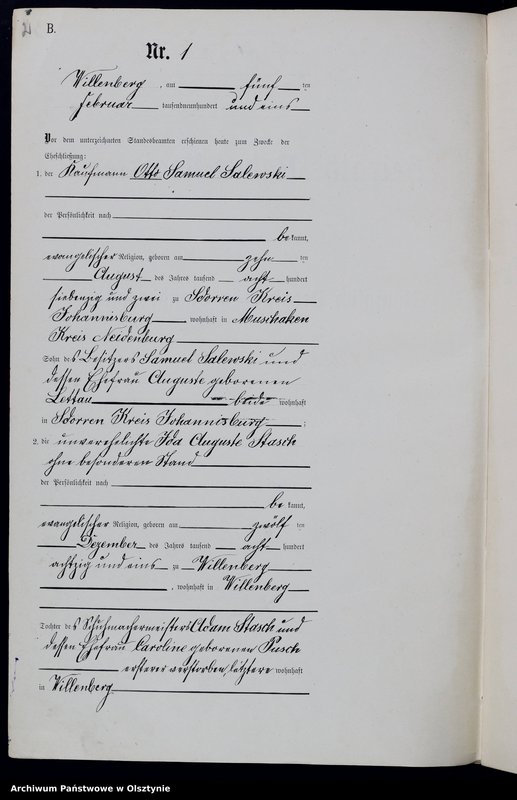 B.
Nr. 1
Willenberg, am fünften
Februar tausendneunhundert und eins
Vor dem unterzeichneten Standesbeamten erschienen heute zum Zwecke der
Eheschließung:
1. der Kaufmann Otto Samuel Salewski
der Persönlichkeit nach
bekannt,
evangelischer Religion, geboren am zehnten
August des Jahres tausend acht hundert
siebenzig und zwei zu Sdorren Kreis
Johannisburg, wohnhaft in Muschaken
Kreis Neidenburg
Sohn des Besitzers Samuel Salewski und
dessen Ehefrau Auguste geborenen
Lettau beide wohnhaft
in Sdorren Kreis Johannisburg;
2. die unverehelichte Ida Auguste Stasch
ohne besonderen Stand
der Persönlichkeit nach
bekannt,
evangelischer Religion, geboren am zwölften
Dezember des Jahres tausend acht hundert
achtzig und eins zu Willenberg
, wohnhaft in Willenberg
Tochter des Schuhmachermeisters Adam Stasch und
dessen Ehefrau Caroline geborenen Pusch
ersterer verstorben, letztere wohnhaft
in Willenberg
Archiwum Państwowe w Olsztynie